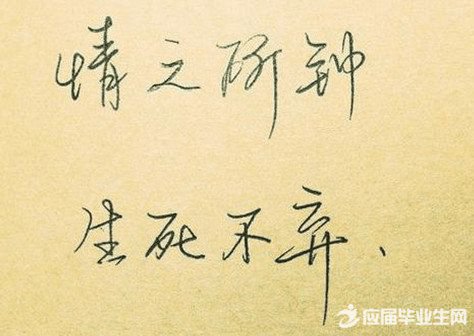 情之所钟
生死不弃、
应届毕业生网